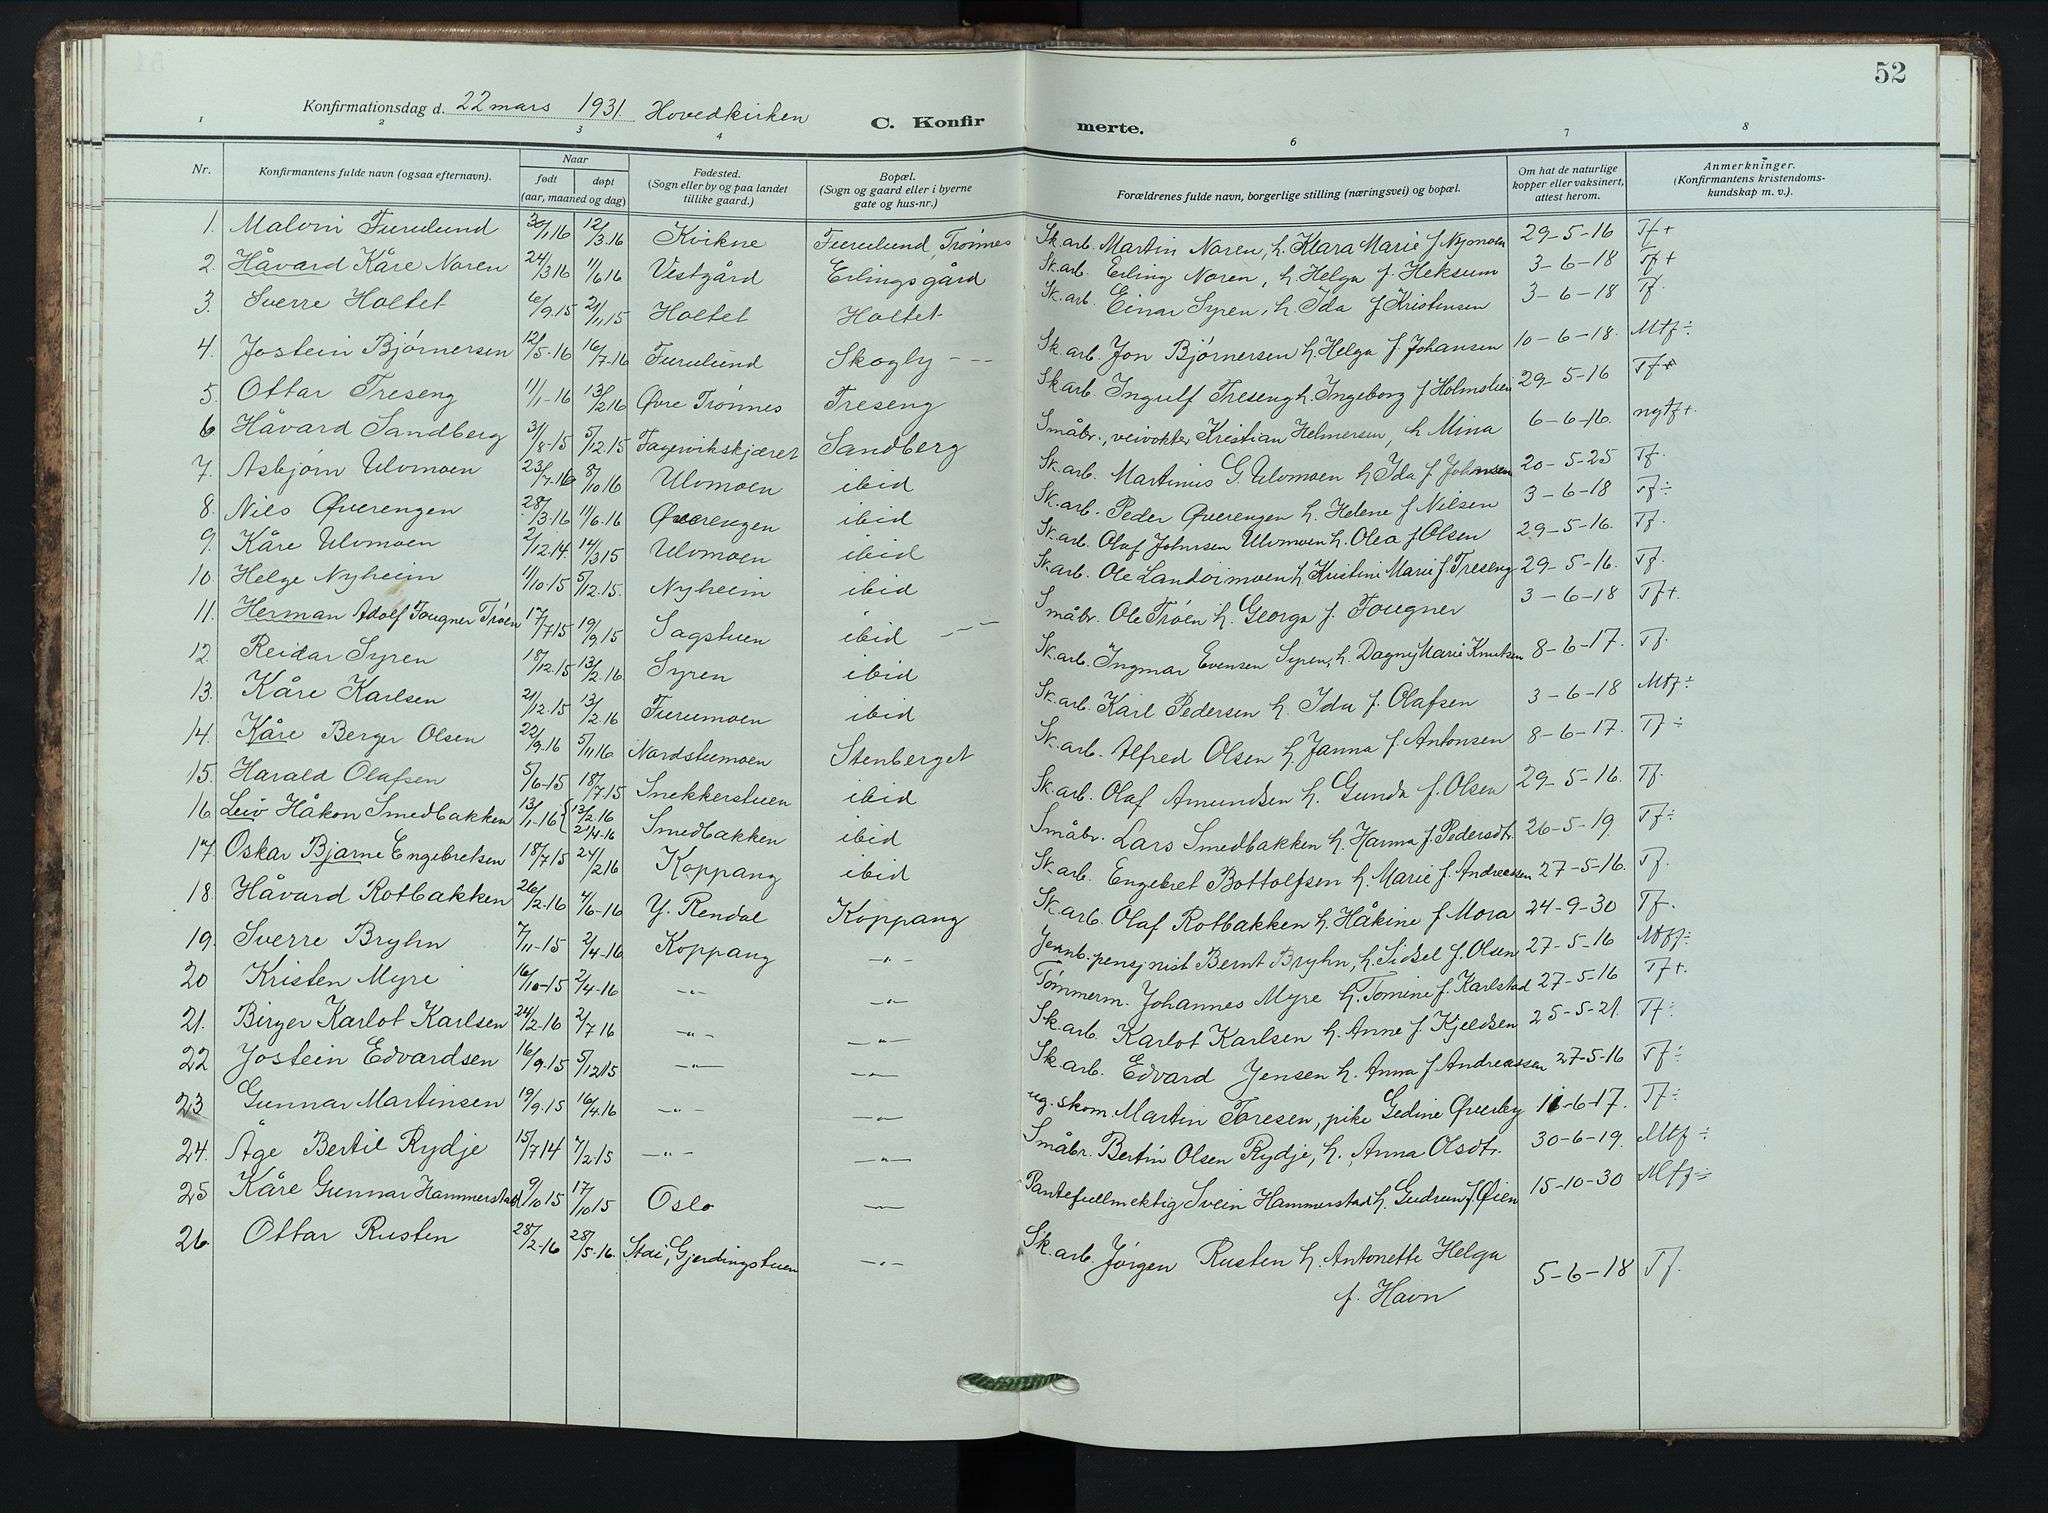 52
Konfirmationsdag d. 22 mars 1931. Hovedkirken
C. Konfirmerte.
1 2 3 4 6 7 8
Nr. | Konfirmantens fulde navn (ogsaa efternavn). | Naar født døpt (aar, maaned og dag) | Fødested. (Sogn eller by og paa landet tillike gaard.) | Bopæl. (Sogn og gaard eller i byerne gate og hus-nr.) | Forældrenes fulde navn, borgerlige stilling (næringsvei) og bopæl. | Om hat de naturlige kopper eller vaksinert, attest herom. | Anmerkninger. (Konfirmantens kristendoms-kundskap m. v.).
1. Malvin Furulund 30/1 16 12/3.16 Kvikne Furulund, Trønnes Sk.arb. Martin Noren, h. Klara Marie f Nymoen 29-5-16 Tf+
2. Håvard Kåre Noren 24/3 16 11/6 16 Vestgård Erlingsgård Sk.arb. Erling Noren, h. Helga f. Heksum 3-6-18 Tf+
3. Sverre Holtet 6/9.15 21/11.15 Holtet Holtet Sk.arb. Einar Syren, h. Ida f Kristensen 3-6-18 Tf.
4. Jostein Bjørnersen 12/5-16 16/7-16 Furulund Skogly Sk.arb. Jon Bjørnersen h. Helga f Johansen 10-6-18. Mtf÷
5. Ottar Treseng 11/1-16 13/2 16 Øvre Trønnes Treseng Sk.arb. Ingulf Treseng h. Ingeborg f Holmstien 29-5-16 Tf+
6 Håvard Sandberg 31/8-15 5/12.15 Fagervikskjæret Sandberg Småbr., veivokter Kristian Helmersen, h Mina 6-6-16. ngtf+.
7. Asbjørn Ulvmoen 23/7.16 8/10 16 Ulvmoen ibid Sk.arb. Martinus G. Ulvmoen h Ida f Johnsen 20-5-25 Tf.
8. Nils Øverengen 28/3.16 11/6.16 Øverengen ibid Sk.arb. Peder Øverengen h. Helene f Nilsen 3-6-18 Tf÷
9. Kåre Ulvmoen 2/12.14 14/3 15 Ulvmoen ibid Sk.arb. Olaf Johnsen Ulvmoen h. Olea f Olsen 29-5-16. Tf.
10. Helge Nyheim 11/10-15 5/12.15. Nyheim ibid Sk.arb. Ole Landsimoen h. Kristine Marie f. Treseng 29-5-16. Tf.
11. Herman Adolf Fougner Trøen 17/7 15 19/9.15 Sagstuen ibid Småbr. Ole Trøen h. Georga f. Fougner 3-6-18 Tf+.
12. Reidar Syren 18/12.15 13/2.16. Syren ibid Sk.arb. Ingmar Evensen Syren, h. Dagny Marie Knutsen 8-6-17. Tf.
13. Kåre Karlsen 21/12.15 13/2.16 Furumoen ibid Sk.arb. Karl Pedersen h. Ida f. Olafsen 3-6-18 Mtf÷
14. Kåre Berger Olsen 22/9.16 5/11 16 Nordstumoen Stenberget Sk.arb. Alfred Olsen h. Janna f Antonsen 8-6-17. Tf÷
15. Harald Olafsen 5/6-15 18/7.15 Snekkerstuen ibid Sk.arb. Olaf Amundsen h. Gunda f. Olsen 29-5-16. Tf.
16. Leiv Håkon Smedbakken 13/1-16 { 13/2.16 21/4-16 Smedbakken ibid Småbr. Lars Smedbakken h. Hanna f. Pedersdtr. 26-5-19. Tf÷
17. Oskar Bjarne Engebretsen 18/7 15 24/2 16 Koppang ibid Sk.arb. Engebret Bottolfsen h. Marie f. Andreassen 27-5-16. Tf.
18. Håvard Rotbakken 26/2-16 4/6-16 Y. Rendal Koppang Sk.arb. Olaf Rotbakken h. Håkine f Mora 24-9-30 Tf.
19. Sverre Bryhn 7/11-15 2/4-16 Koppang —"— Jernb.pensjnist Bernt Bryhn, h. Sidsel f. Olsen 27-5-16 Mtf÷
20 Kristen Myre 16/10-15 2/4-16 —"— —"— Tømmerm. Johannes Myre h. Tomine f. Karlstad 27-5-16 Tf+.
21. Birger Karlot Karlsen 24/2-16 2/7 16 —"— —"— Sk.arb. Karlot Karlsen h. Anne f Kjeldsen 25-5-21. Tf÷
22 Jostein Edvardsen 16/9.15 5/12 15 —"— —"— Sk.arb. Edvard Jensen h. Anna f Andreassen 27-5-16 Tf÷
23 Gunnar Martinsen 19/9.15 16/4.16 —"— —"— ug. skom. Martin Toresen, pike Gedine Øverby 11-6-17. Tf÷
24. Åge Bertil Rydje 15/7 14 7/2.15 —"— —"— Småbr. Bertin Olsen Rydje, h. Anna Olsdtr. 30-6-19. Mtf÷
25 Kåre Gunnar Hammerstad 9/10 15 17/10 15 Oslo —"— Pantefullmektig Svein Hammerstad h. Gudrun f. Øien 15-10-30 Mtf÷
26. Ottar Rusten 28/2-16 28/5-16. Stai, Gjerdingstuen —"— Sk.arb. Jørgen Rusten h. Antonette Helga f. Havn 5-6-18 Tf.